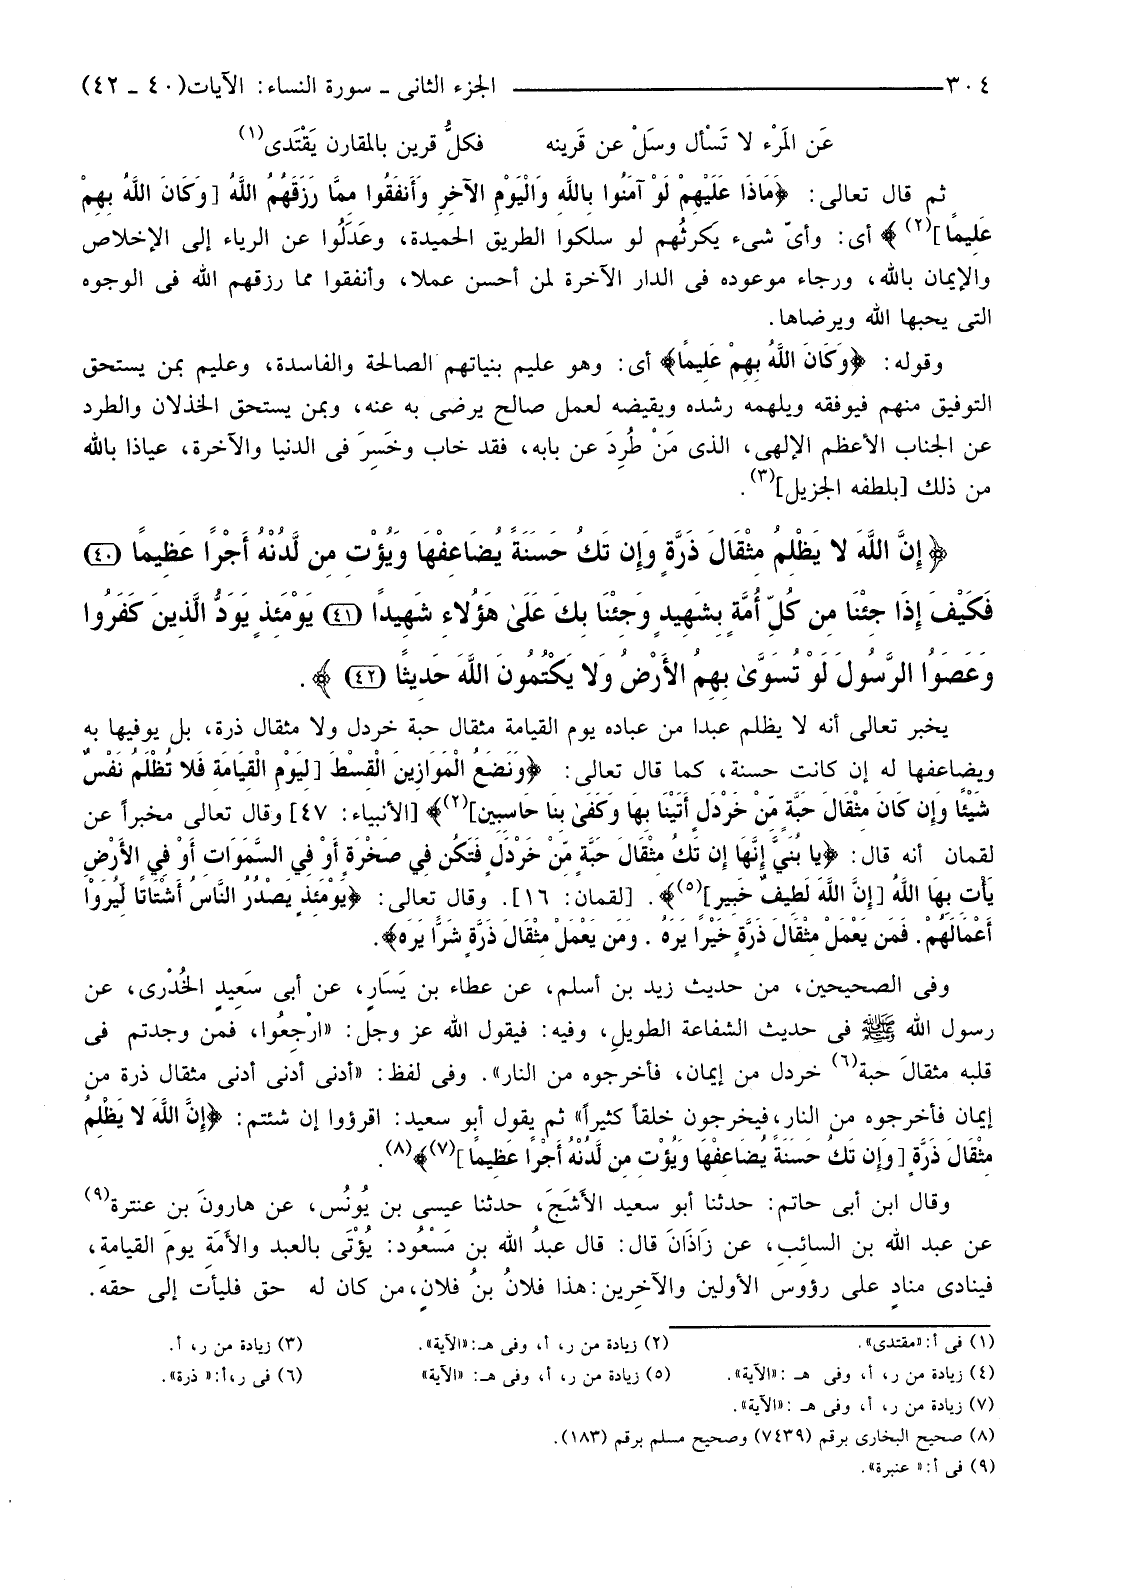 ٣٠٤ ـــــــــــــــــ الجزء الثانى ـ سورة النساء: الآيات(٤٠ ـ ٤٢)
عَن المَرْء لا تَسْأل وسَلْ عن قَرينه فكلُّ قرين بالمقارن يَقْتَدى(١)
ثم قال تعالى: ﴿وَمَاذَا عَلَيْهِمْ لَوْ آمَنُوا بِاللَّهِ وَالْيَوْمِ الآخِرِ وَأَنفَقُوا مِمَّا رَزَقَهُمُ اللَّهُ [وَكَانَ اللَّهُ بِهِمْ
عَلِيمًا](٢) ﴾ أى: وأىّ شىء يَكرثُهم لو سلكوا الطريق الحميدة، وعَدَلُوا عن الرياء إلى الإخلاص
والإيمان بالله، ورجاء موعوده فى الدار الآخرة لمن أحسن عملا، وأنفقوا مما رزقهم الله فى الوجوه
التى يحبها الله ويرضاها.
وقوله: ﴿وَكَانَ اللَّهُ بِهِمْ عَلِيمًا﴾ أى: وهو عليم بنياتهم الصالحة والفاسدة، وعليم بمن يستحق
التوفيق منهم فيوفقه ويلهمه رشده ويقيضه لعمل صالح يرضى به عنه، وبمن يستحق الخذلان والطرد
عن الجناب الأعظم الإلهى، الذى مَنْ طُرِدَ عن بابه، فقد خاب وخَسِرَ فى الدنيا والآخرة، عياذا بالله
من ذلك [بلطفه الجزيل](٣).
﴿ إِنَّ اللَّهَ لا يَظْلِمُ مِثْقَالَ ذَرَّةٍ وَإِن تَكُ حَسَنَةً يُضَاعِفْهَا وَيُؤْتِ مِن لَّدُنْهُ أَجْرًا عَظِيمًا (٤٠)
فَكَيْفَ إِذَا جِئْنَا مِن كُلِّ أُمَّةٍ بِشَهِيدٍ وَجِئْنَا بِكَ عَلَىٰ هَؤُلاءِ شَهِيدًا (٤١) يَوْمَئِذٍ يَوَدُّ الَّذِينَ كَفَرُوا
وَعَصَوُا الرَّسُولَ لَوْ تُسَوَّىٰ بِهِمُ الأَرْضُ وَلا يَكْتُمُونَ اللَّهَ حَدِيثًا (٤٢) ﴾.
يخبر تعالى أنه لا يظلم عبدا من عباده يوم القيامة مثقال حبة خردل ولا مثقال ذرة، بل يوفيها به
ويضاعفها له إن كانت حسنة، كما قال تعالى: ﴿وَنَضَعُ الْمَوَازِينَ الْقِسْطَ [لِيَوْمِ الْقِيَامَةِ فَلا تُظْلَمُ نَفْسٌ
شَيْئًا وَإِن كَانَ مِثْقَالَ حَبَّةٍ مِّنْ خَرْدَلٍ أَتَيْنَا بِهَا وَكَفَىٰ بِنَا حَاسِبِينَ](٢)﴾ [الأنبياء: ٤٧] وقال تعالى مخبراً عن
لقمان أنه قال: ﴿يا بُنَيَّ إِنَّهَا إِن تَكُ مِثْقَالَ حَبَّةٍ مِّنْ خَرْدَلٍ فَتَكُن فِي صَخْرَةٍ أَوْ فِي السَّمَوَاتِ أَوْ فِي الأَرْضِ
يَأْتِ بِهَا اللَّهُ [إِنَّ اللَّهَ لَطِيفٌ خَبِير](٥)﴾. [لقمان: ١٦]. وقال تعالى: ﴿يَوْمَئِذٍ يَصْدُرُ النَّاسُ أَشْتَاتًا لِّيُرَوْا
أَعْمَالَهُمْ. فَمَن يَعْمَلْ مِثْقَالَ ذَرَّةٍ خَيْرًا يَرَهُ . وَمَن يَعْمَلْ مِثْقَالَ ذَرَّةٍ شَرًّا يَره﴾.
وفى الصحيحين، من حديث زيد بن أسلم، عن عطاء بن يَسَارٍ، عن أبى سَعِيدٍ الخُدْرى، عن
رسول الله ﷺ فى حديث الشفاعة الطويلِ، وفيه: فيقول الله عز وجل: «ارْجِعُوا، فمن وجدتم فى
قلبه مثقالَ حبة(٦) خردل من إيمان، فأخرجوه من النار». وفى لفظ: «أدنى أدنى أدنى مثقال ذرة من
إيمان فأخرجوه من النار،فيخرجون خلقاً كثيراً» ثم يقول أبو سعيد: اقرؤوا إن شئتم: ﴿إِنَّ اللَّهَ لا يَظْلِمُ
مِثْقَالَ ذَرَّةٍ [وَإِن تَكُ حَسَنَةً يُضَاعِفْهَا وَيُؤْتِ مِن لَّدُنْهُ أَجْرًا عَظِيمًا](٧)﴾(٨).
وقال ابن أبى حاتم: حدثنا أبو سعيد الأشَجَ، حدثنا عيسى بن يُونُس، عن هارونَ بن عنترة(٩)
عن عبد الله بن السائِب، عن زَاذَانَ قال: قال عبدُ الله بن مَسْعُود: يُؤْتَى بالعبد والأمَةِ يومَ القيامةِ،
فينادى منادٍ على رؤوس الأولين والآخرِين:هذا فلانُ بنُ فلانٍ،من كان له حق فليأت إلى حقه.
(١) فى أ:«مقتدى». (٢) زيادة من ر، أ، وفى هـ:«الآية». (٣) زيادة من ر، أ.
(٤) زيادة من ر، أ، وفى هـ :«الآية». (٥) زيادة من ر، أ، وفى هـ: «الآية» (٦) فى ر،أ:« ذرة».
(٧) زيادة من ر، أ، وفى هـ :«الآية».
(٨) صحيح البخارى برقم (٧٤٣٩) وصحيح مسلم برقم (١٨٣).
(٩) فى أ:« عنبرة».